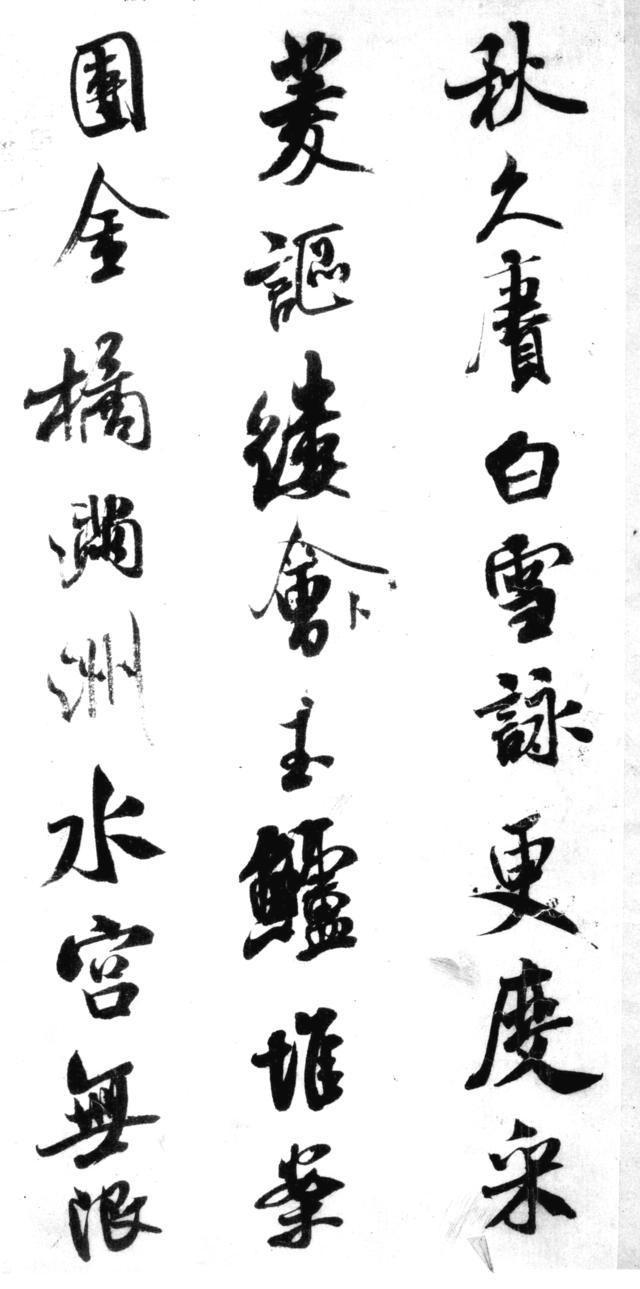 秋久賡白雪詠更度采
菱謳縷會卜玉鱸堆案
團金橘滿洲水宮無限